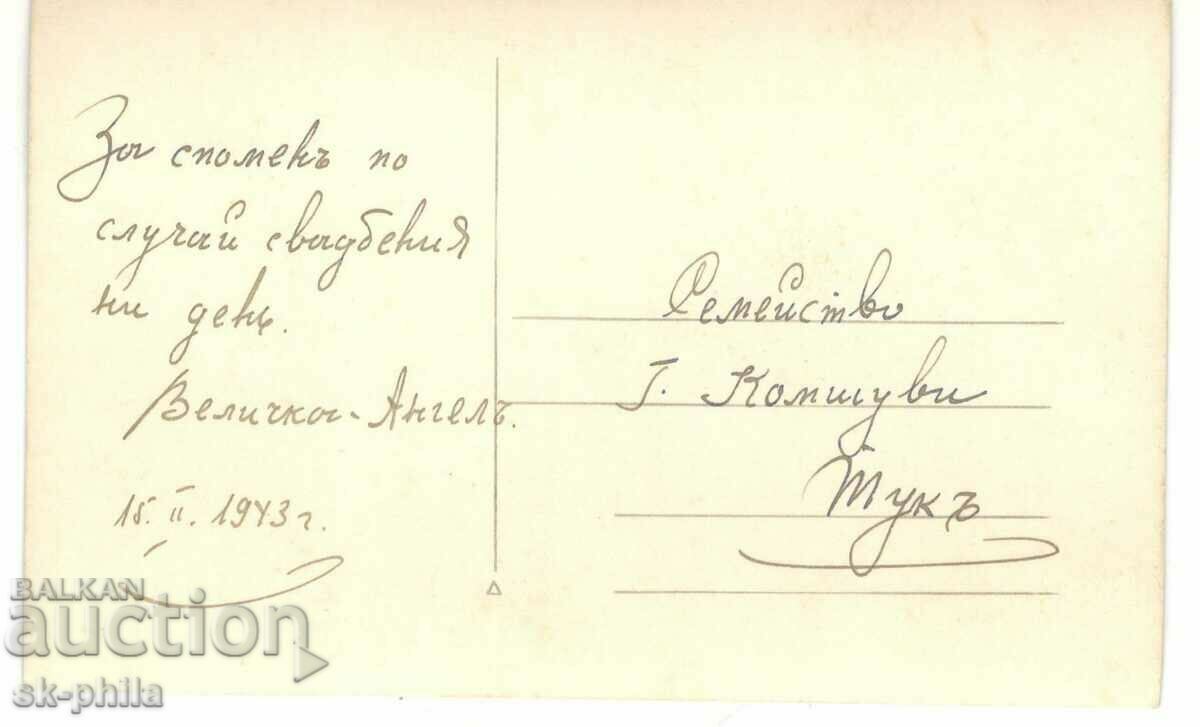 За споменъ по
случай свадбения
ни день.
Величка - Ангелъ.
15. II. 1943 г.
Семейство
Г. Комшуви
Тукъ
BALKAN
auction
sk-phila